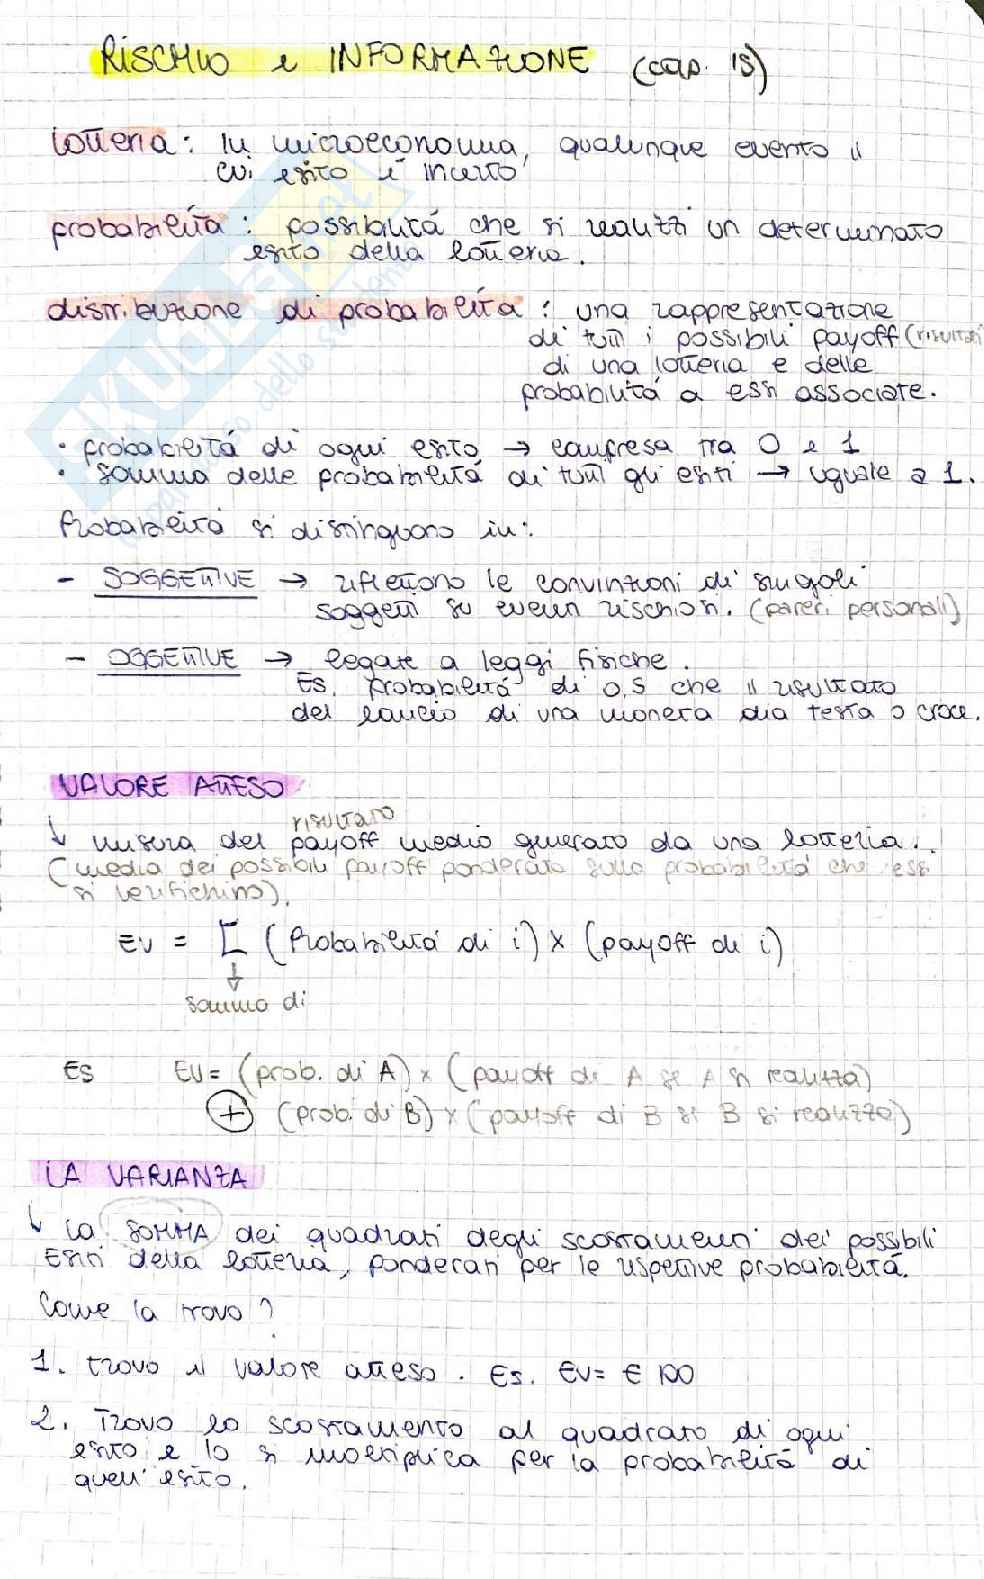 RISCHIO e INFORMAZIONE (cap. 15)
lotteria: In microeconomia, qualunque evento il
cui esito è incerto
probabilità: possibilità che si realizzi un determinato
esito della lotteria.
distribuzione di probabilità: una rappresentazione
di tutti i possibili payoff (risultati
di una lotteria e delle
probabilità a essi associate.
• probabilità di ogni esito → compresa tra 0 e 1
• somma delle probabilità di tutti gli esiti → uguale a 1.
Probabilità si distinguono in:
- SOGGETTIVE → riflettono le convinzioni di singoli
soggetti su eventi rischiosi. (pareri personali)
- OGGETTIVE → legate a leggi fisiche.
Es. probabilità di 0,5 che il risultato
del lancio di una moneta dia testa o croce.
VALORE ATTESO
risultato
↓ misura del payoff medio generato da una lotteria.
(media dei possibili payoff ponderata sulla probabilità che essi
si verifichino).
EV = Σ (Probabilità di i) x (payoff di i)
↓
somma di
Es EV= (prob. di A) x (payoff di A se A si realizza)
+ (prob. di B) x (payoff di B se B si realizza)
LA VARIANZA
↓ la SOMMA dei quadrati degli scostamenti dei possibili
Esiti della lotteria, ponderati per le rispettive probabilità.
Come la trovo?
1. trovo il valore atteso. Es. EV= € 100
2. Trovo lo scostamento al quadrato di ogni
esito e lo si moltiplica per la probabilità di
quell'esito.
SKUOLA.net